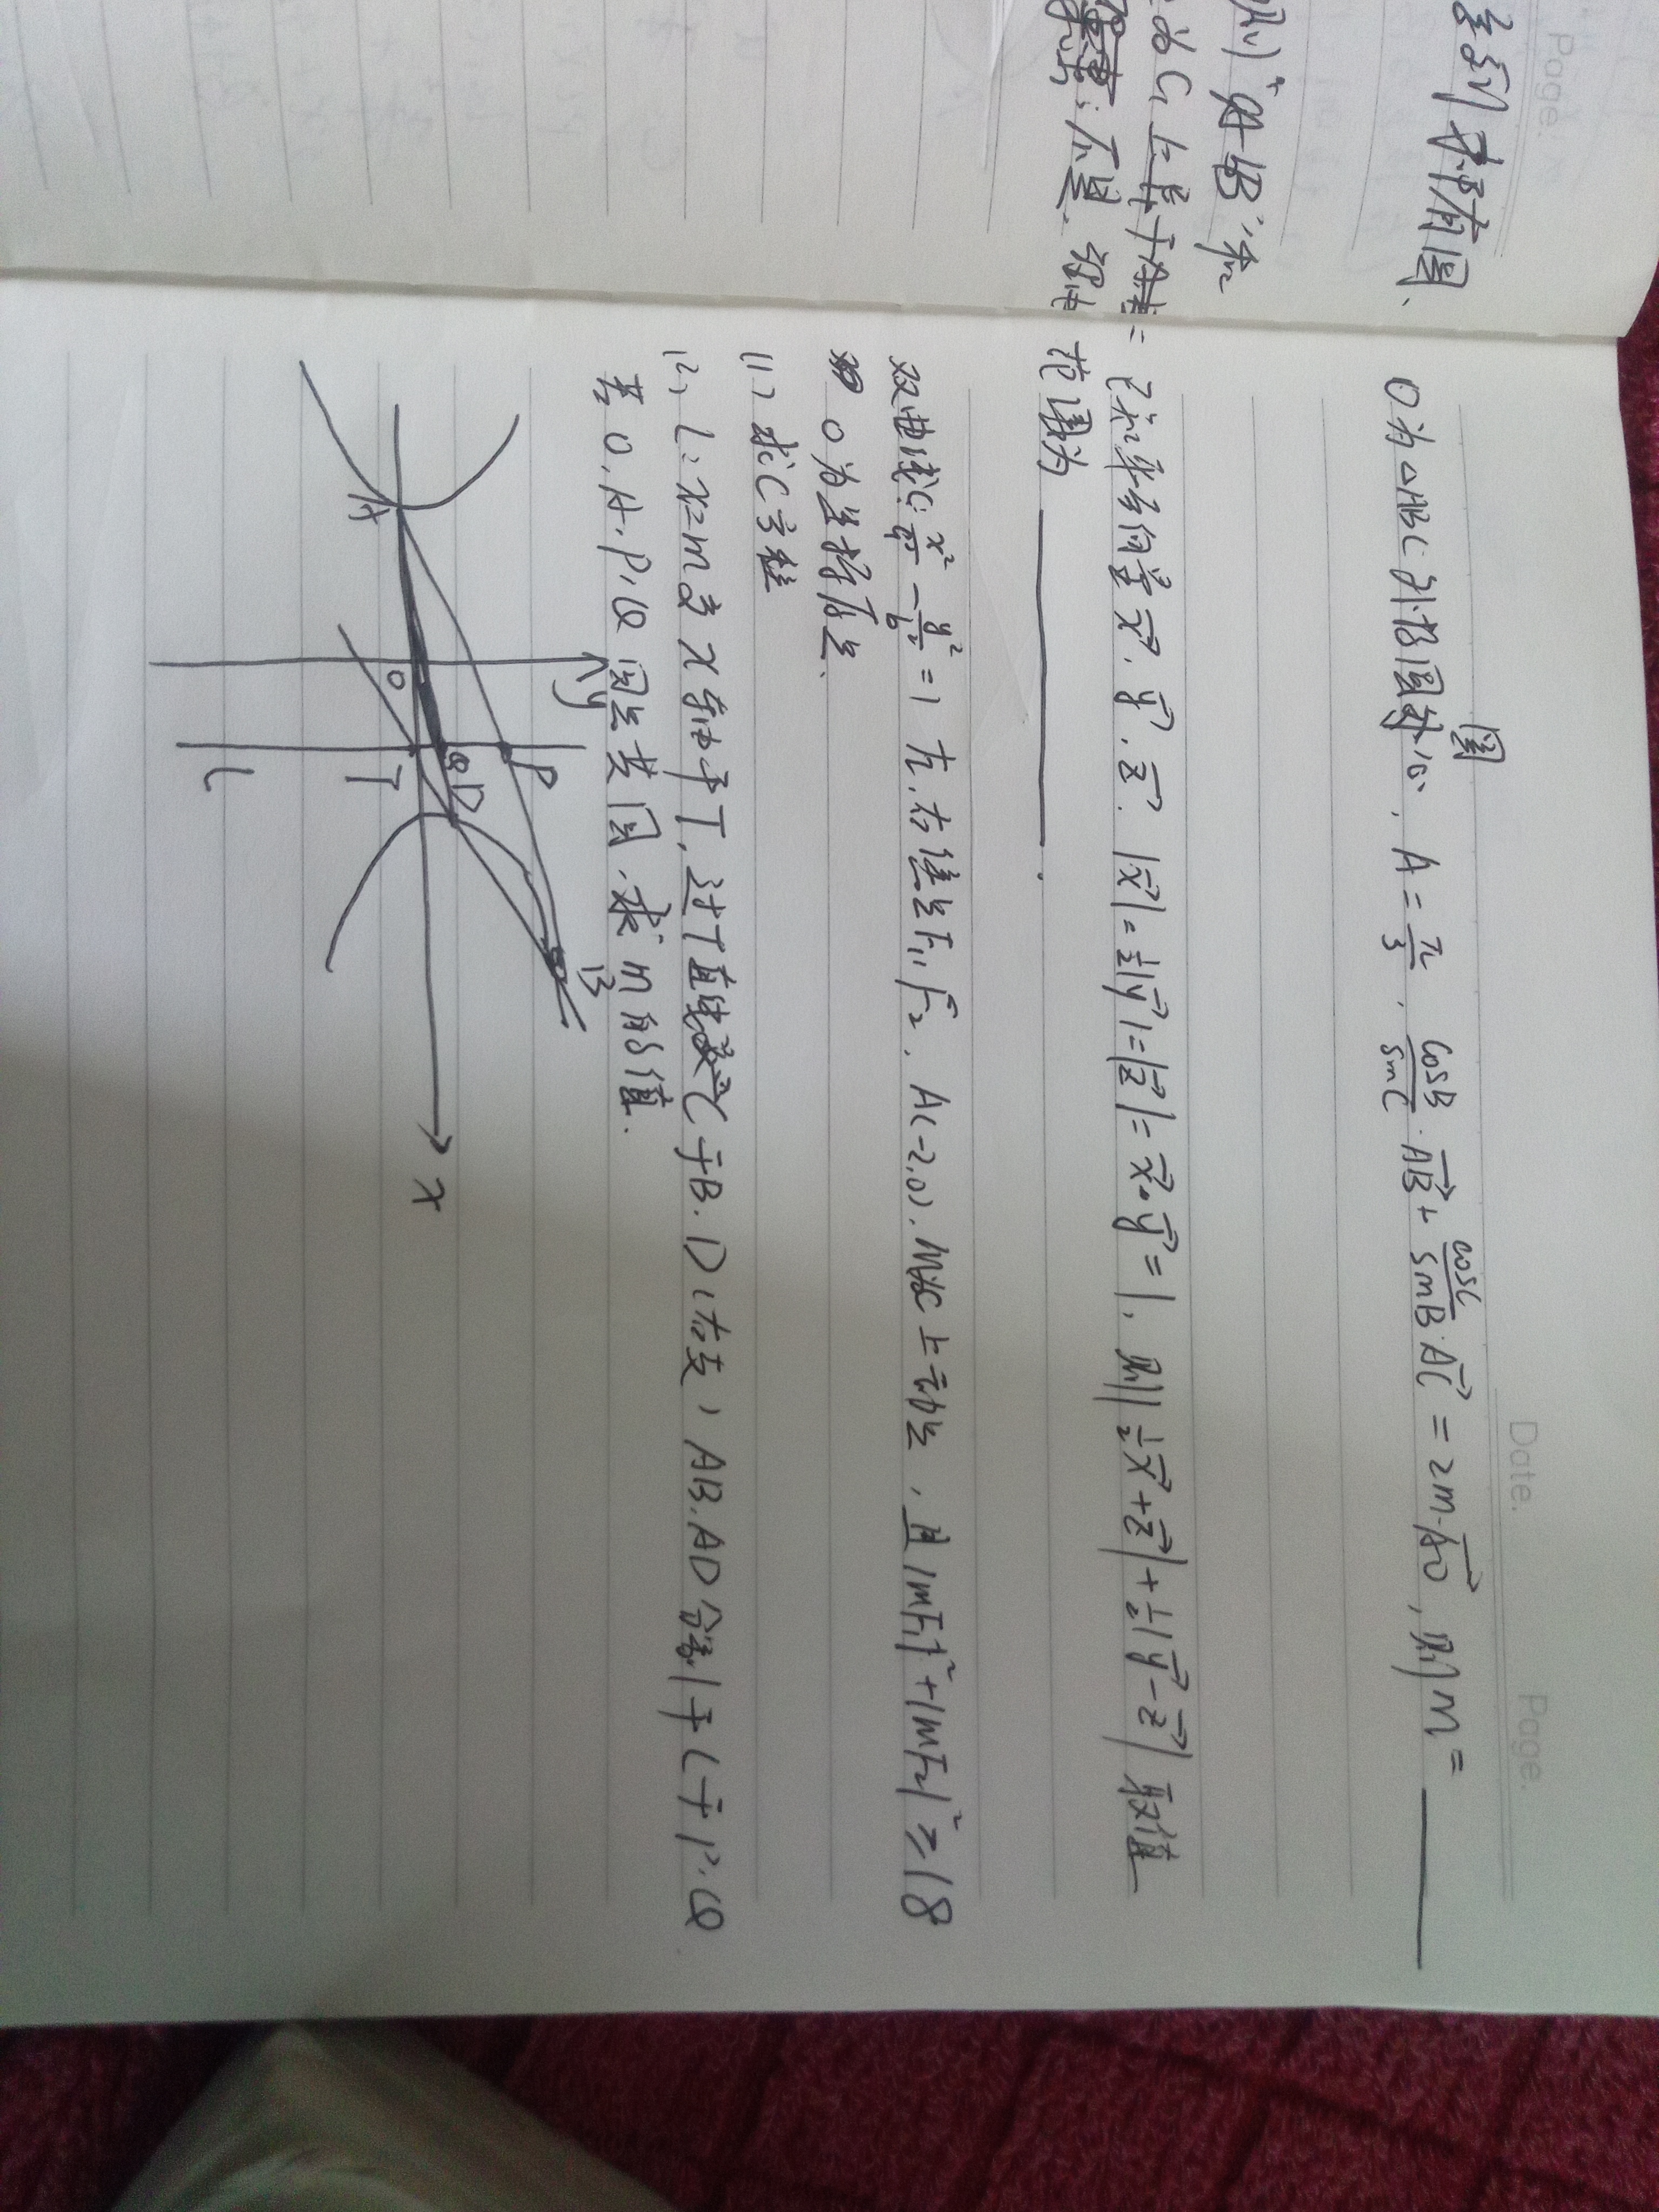 Date. Page.
O为△ABC外接圆圆心, A=π/3, cosB/sinC·AB→+cosC/sinB·AC→=2m·AO→, 则m=
已知平面向量x→, y→, z→. |x→|=1/2|y→|=|z→|=x→·y→=1, 则|1/2x→+z→|+1/2|y→-z→|取值
范围为 .
双曲线C: x²/a²-y²/b²=1 左,右焦点F₁,F₂, A(-2,0), M为C上动点, 且|MF₁|²+|MF₂|²≥18
O为坐标原点.
(1) 求C方程
(2) L:x=m交x轴于T, 过T直线交C于B.D(右支), AB.AD分别于L于P.Q
若O.A.P.Q四点共圆,求m的值.
y
P
B
A
O
Q
D
T
L
x
Page.
则
为C上
不是